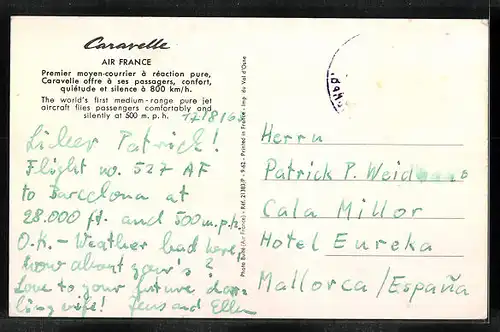 Caravelle
AIR FRANCE
Premier moyen-courrier à réaction pure,
Caravelle offre à ses passagers, confort,
quiétude et silence à 800 km/h.
The world's first medium-range pure jet
aircraft flies passengers comfortably and
silently at 500 m. p. h.
17/8/6
Lieber Patrick!
Flight no. 527 AF
to Barcelona at
28.000 ft. and 500 m.p.h.
O.K. - Weather bad here,
how about your's?
Love to your future dar-
ling wife! Jens and Ellen
Photo Bubé (Air France) - Réf. 21383/P - 9-62 - Printed in France - Imp. du Val d'Osne
Herrn
Patrick P.
Cala Millor
Hotel Eureka
Mallorca/España